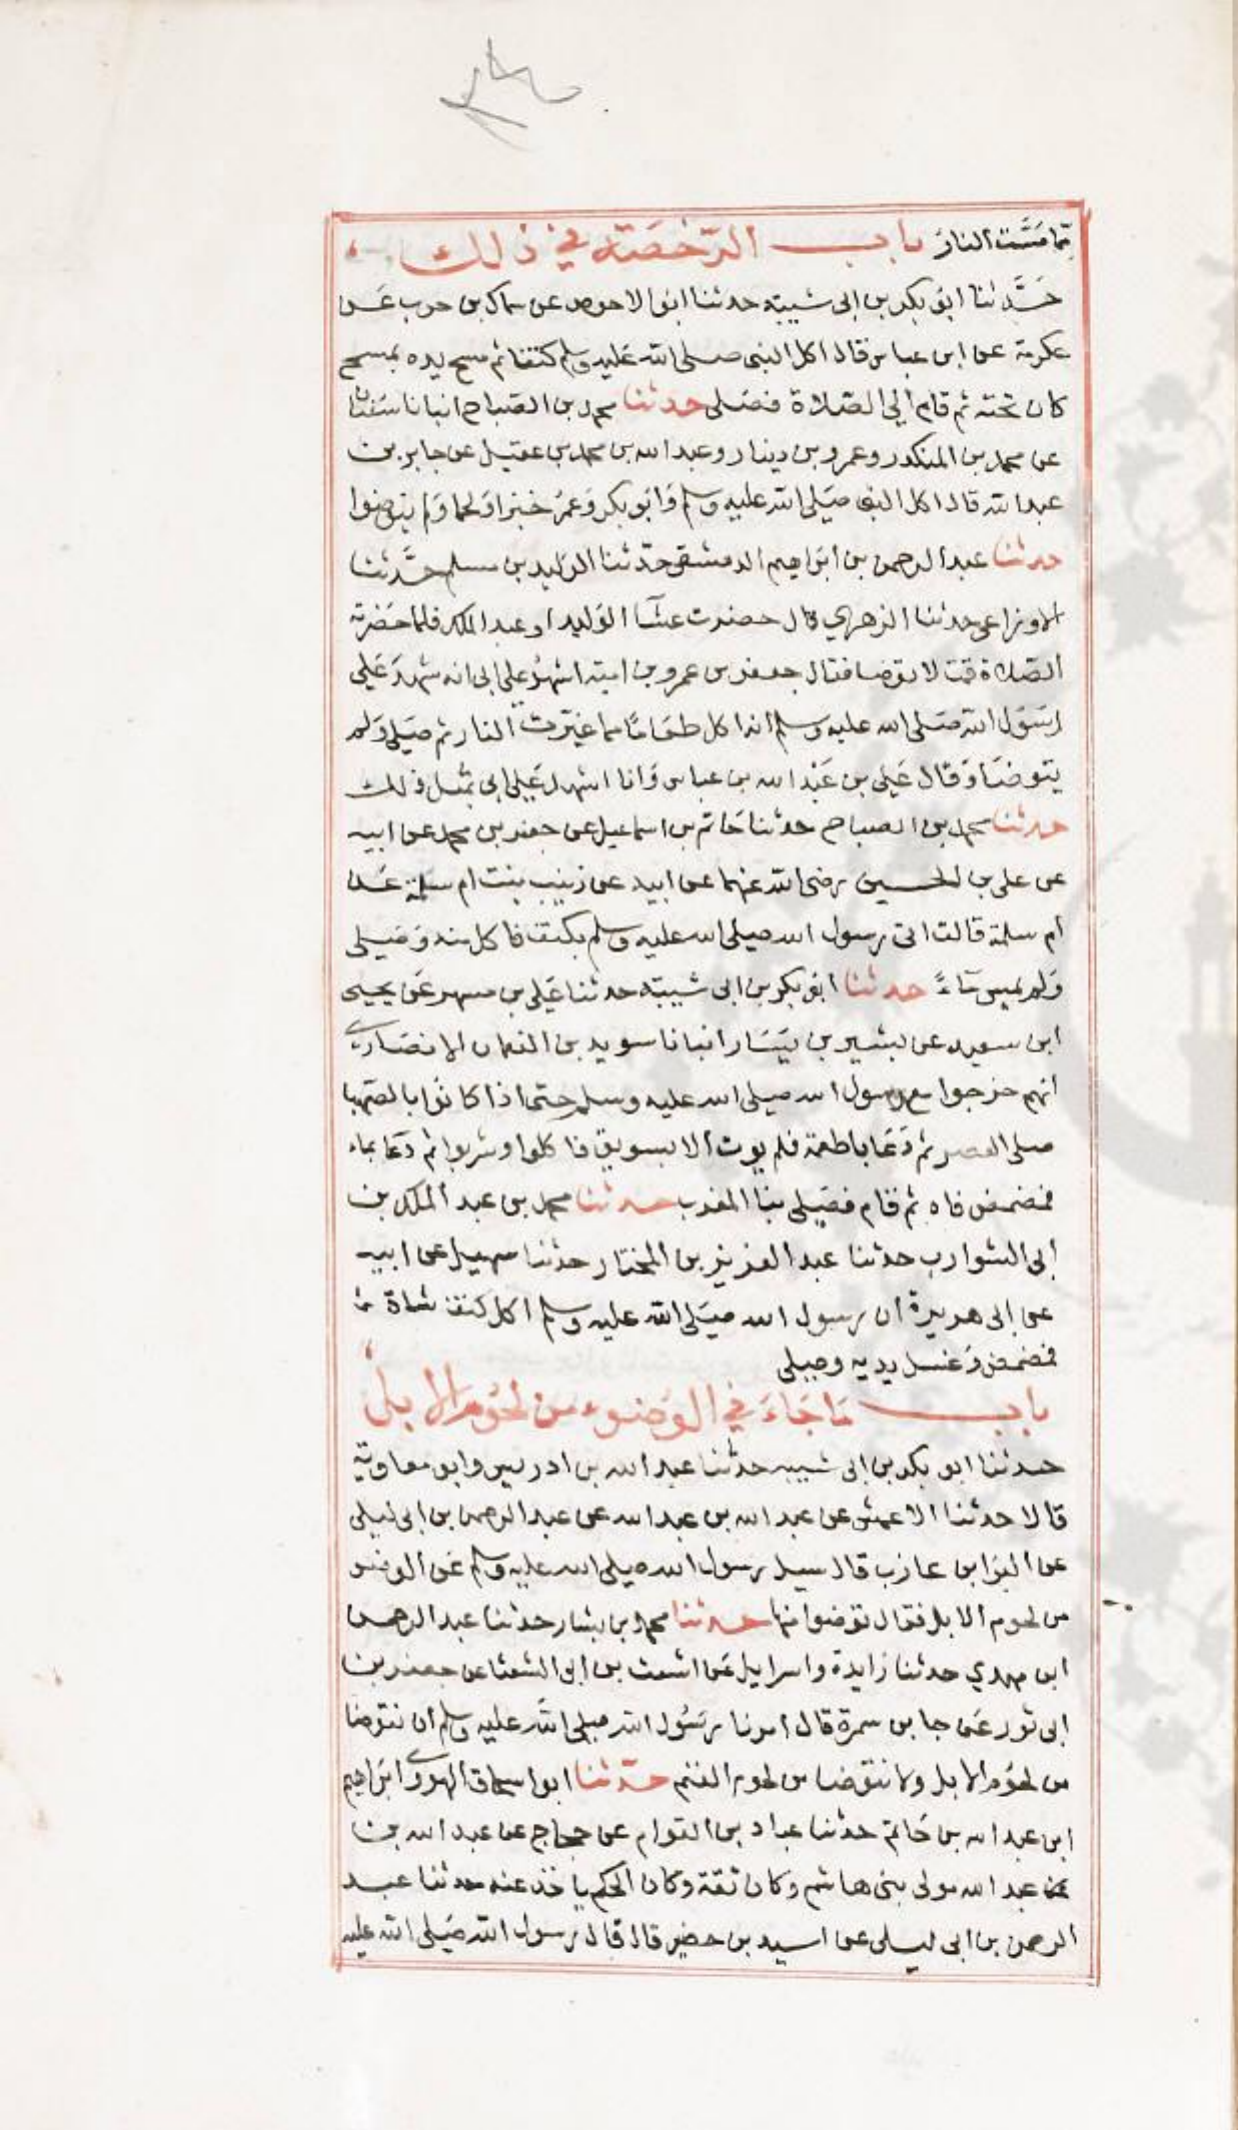 مما مَسَّت النارُ باب الرّخصَة في ذلك
حَدَّثنا ابو بكر بن ابى شيبة حدثنا ابو الاحوص عن سماك بن حرب عَن
عكرمة عن ابن عباس قال اكل النبى صلى الله عليه وسلم كتفا ثم مسح يده بمسح
كان تحته ثم قام الى الصلاة فصَلى حدثنا محمد بن الصباح انبانا سَفين
عن محمد بن المنكدر وعمرو بن دينار وعبد الله بن محمد بن عقيل عن جابر بن
عبد الله قال اكل النبى صَلى الله عليه وسلم وَابو بكر وَعمرُ خبزا وَلحما وَلم يتوضوا
حدثنا عبد الرحمن بن ابرَاهيم الدمشقى حدّثنا الوَليد بن مسلم حدَّثنا
الاوزاعى حدثنا الزهري قال حضرت عشآ الوَليد او عبد الملك فلما حَضرَت
الصّلاة قمت لاتوضا فقال جعفر بن عمرو بن امية اشهدُ على ابى انه شهدَ عَلى
رسَول الله صَلى الله عليه وسلم انه اكل طعَامًا مما غيّرت النار ثم صَلى وَلم
يتوضَا وَقال عَلى بن عَبْد الله بن عباس وَانا اشهد عَلى ابى بمثل ذلك
حدثنا محمد بن الصباح حدثنا حَاتم بن اسماعيل عن جعفر بن محمد عن ابيه
عن على بن الحسين رضى الله عنهما عن ابيه عن زينب بنت ام سلمة عَن
أم سلمة قالت اتى رسول الله صلى الله عليه وسلم بكتف فاكل منه وَصَلى
وَلم يمس مَاءً حدثنا ابو بكر بن ابى شيبة حدثنا عَلى بن مسهر عَن يحيى
ابن سعيد عن بشير بن يَسَار انبانا سويد بن النعمان الانصَارى
انهم خرجوا مع رسول الله صلى الله عليه وسلم حتى اذا كانوا بالصهبا
صلى العصر ثم دَعَا باطعمة فلم يوت الا بسويق فاكلوا وشربوا ثم دعَا بماء
فمضمض فاه ثم قام فصَلى بنا المغرب حدثنا محمد بن عبد الملك بن
أبى الشوارب حدثنا عبد العزيز بن المختار حدثنا سهيل عن ابيه
عن ابى هريرة ان رسول الله صَلى الله عليه وسلم اكل كتف شاة
فمضمض وَغسل يديه وصلى
باب مَا جَاءَ فى الوَضوء من لحوم الابل
حدثنا ابو بكر بن ابى شيبه حدثنا عبد الله بن ادريس وابو معاوية
قالا حدثنا الاعمش عن عبد الله بن عبد الله عن عبد الرحمن بن ابى ليلى
عن البرَا بن عازب قال سيل رسول الله صلى الله عليه وسلم عَن الوضو
من لحوم الابل فقال توضوا منها حدثنا محمد بن بشار حدثنا عبد الرحمن
ابن مهدي حدثنا زايدة واسرايل عَن اشعث بن ابى الشعثا عن جعفر بن
ابى ثور عَن جابر بن سمرة قال امرنا رسُول الله صلى الله عليه وسلم ان نتوضا
من لحوُم الابل ولا نتوضا من لحوم الغنم حدّثنا ابو اسحاق الهروى ابرَاهيم
ابن عبد الله بن حَاتم حدثنا عباد بن العَوام عن حجاج عن عبد الله بن
عبد الله مولى بنى هاشم وكان ثقة وكان الحكم ياخذ عنه حدثنا عبد
الرحمن بن ابى ليلى عن اسيد بن حضير قال قال رسول الله صَلى الله عليه